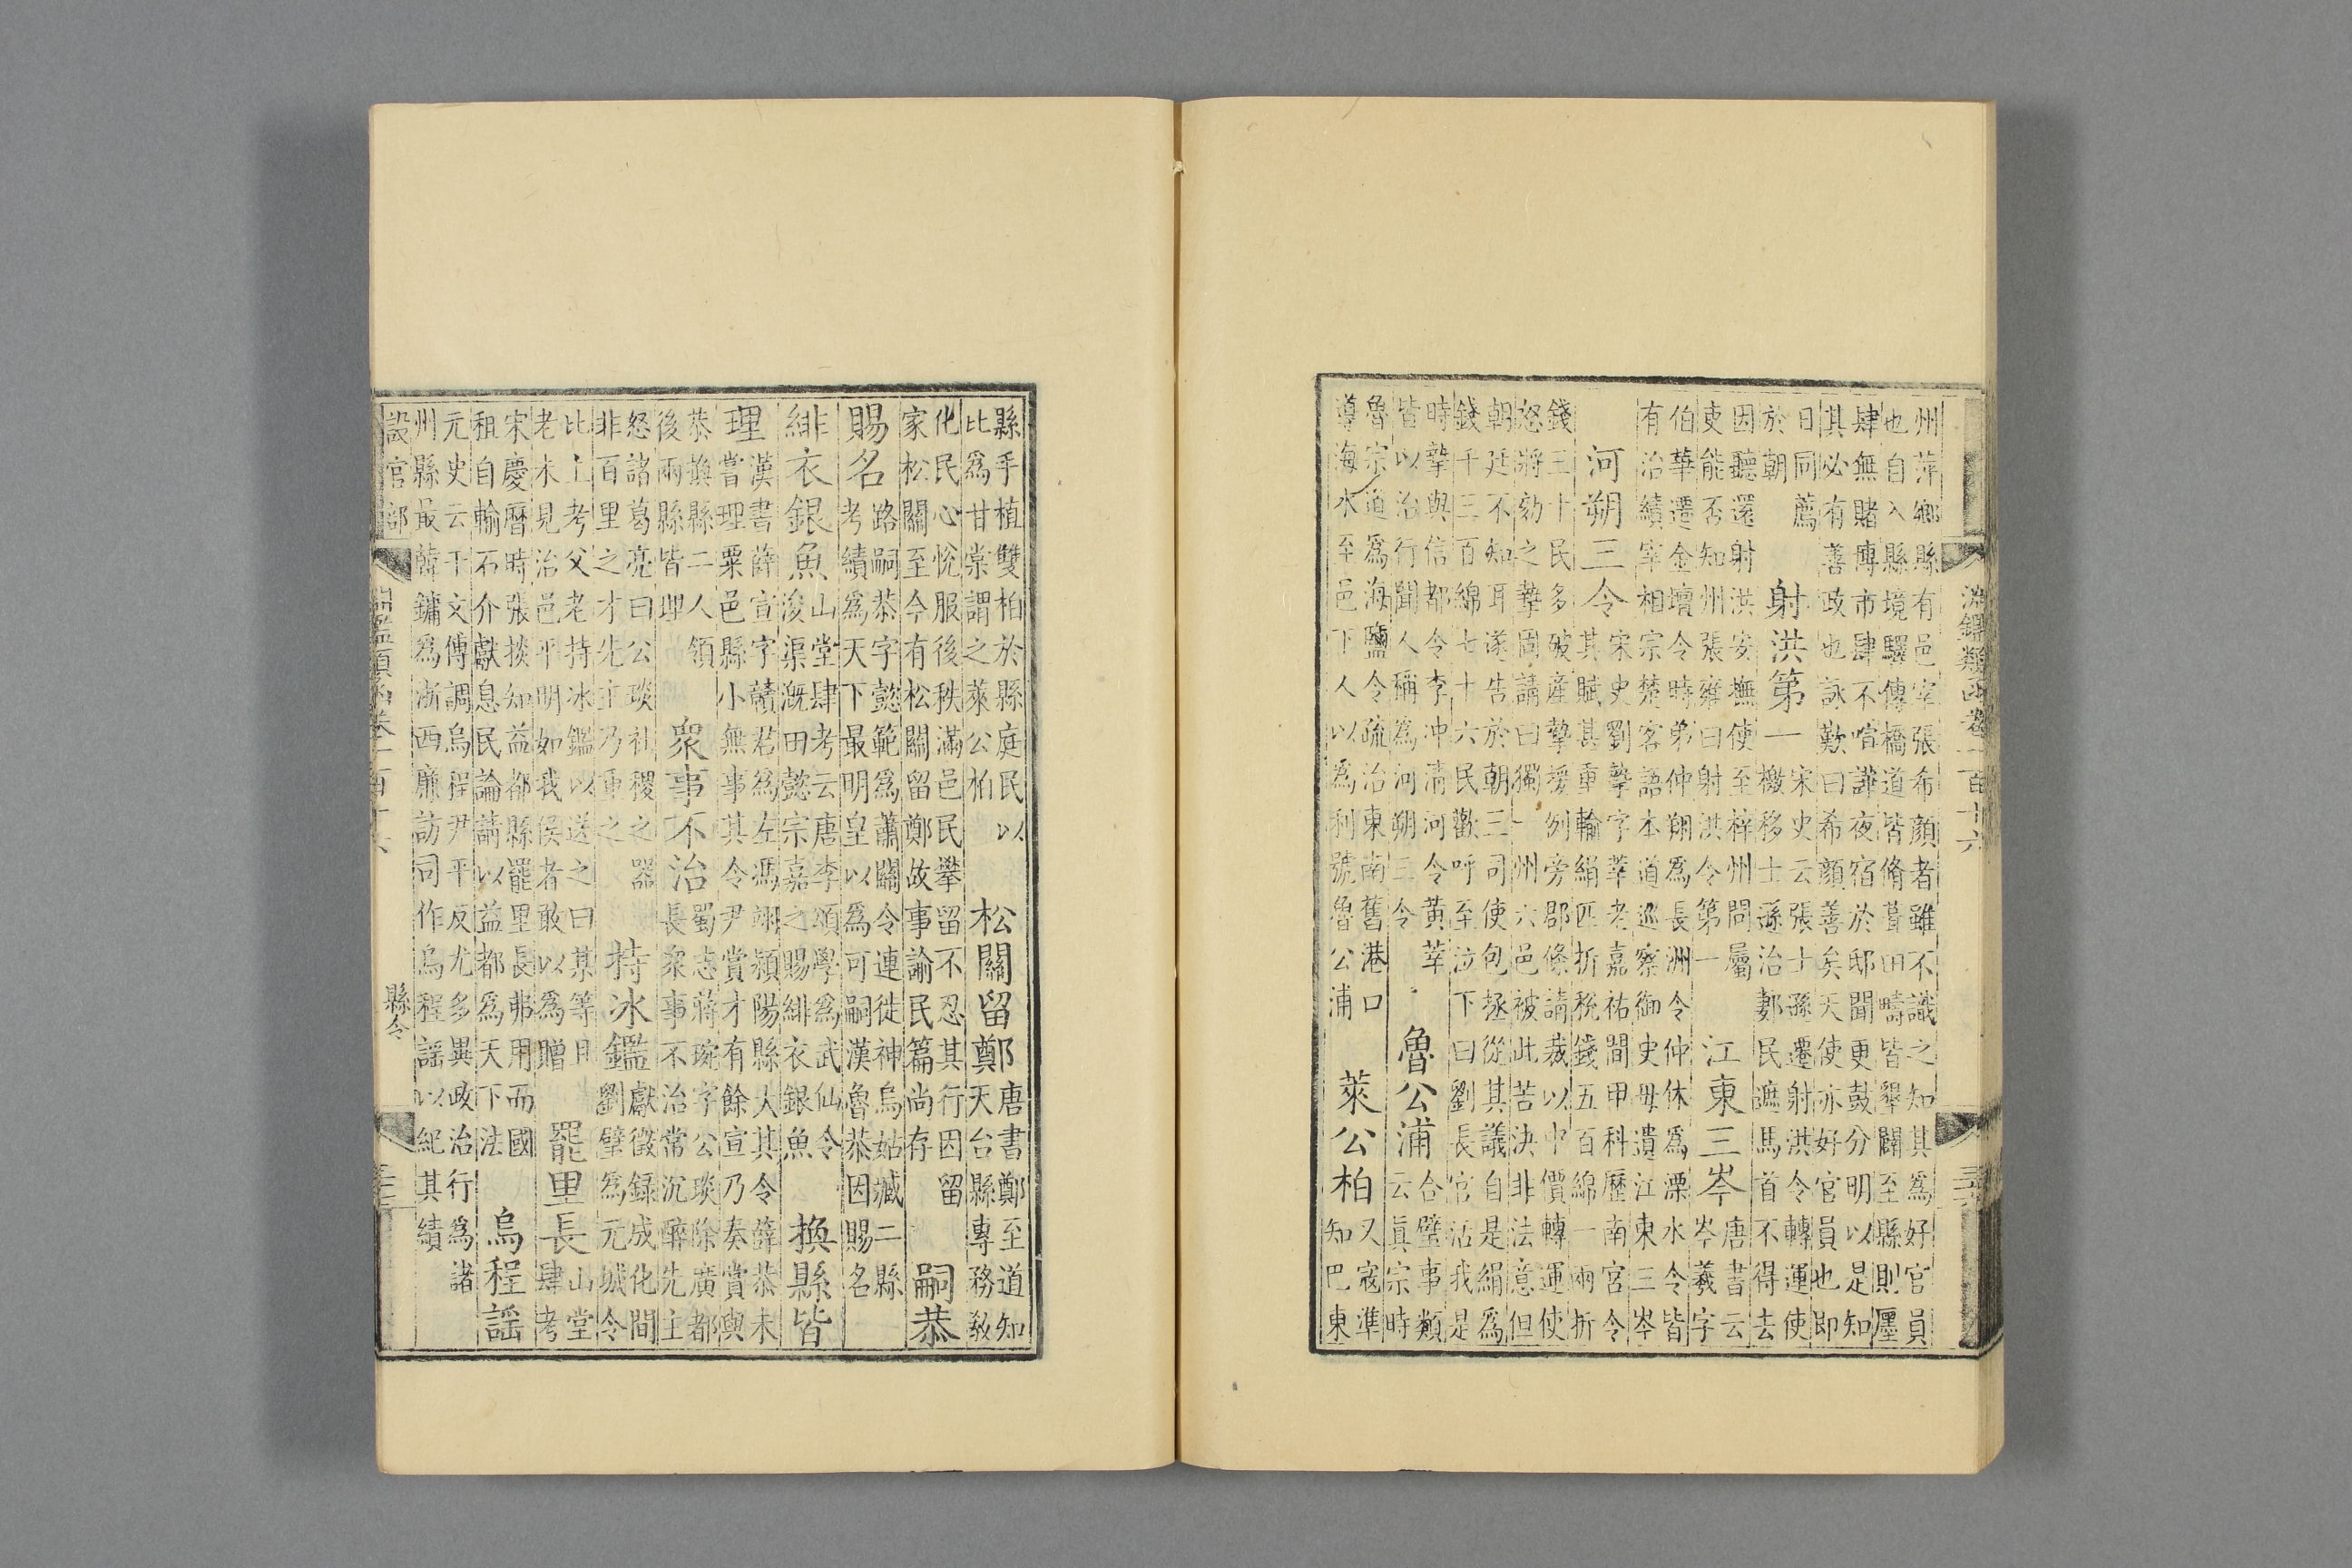 淵鑑類函卷一百十六
州萍鄉縣有邑宰張希顔者雖不識之知其爲好官員
也自入縣境驛傳橋道皆脩葺田疇皆墾闢至縣則廛
肆無賭博市肆不喧譁夜宿於邸聞更鼓分明以是知
其必有善政也詠歎曰希顔善矣天使亦好官員也即
日同薦
於朝
射洪第一
宋史云張士遜遷射洪令轉運使
檄移士遜治郪民遮馬首不得去
因聽還射洪安撫使至梓州問屬
吏能否知州張雍曰射洪令第一
江東三岑
唐書云
岑羲字
伯華遷金壇令時弟仲翔爲長洲令仲休爲溧水令皆
有治績宰相宗楚客語本道巡察御史毋遺江東三岑
河朔三令
宋史劉摯字莘老嘉祐間甲科歷南宮令
其賦甚重輸絹匹折稅錢五百綿一兩折
錢三十民多破產摯援例旁郡條請裁以中價轉運使
怒將劾之摯固請曰獨一州六邑被此苦決非法意但
朝廷不知耳遂告於朝三司使包拯從其議自是絹爲
錢千三百綿七十六民歡呼至泣下曰劉長官活我是
時摯與信都令李冲清河令黃莘
皆以治行聞人稱爲河朔三令
魯公浦
合璧事類
云眞宗時
魯宗道爲海鹽令疏治東南舊港口
導海水至邑下人以爲利號魯公浦
萊公柏
又寇準
知巴東
縣手植雙柏於縣庭民以
比爲甘棠謂之萊公柏
松關留鄭
唐書鄭至道知
天台縣專務敎
化民心悅服後秩滿邑民攀留不忍其行因留
家松關至今有松關留鄭故事諭民篇尚存
嗣恭
賜名
路嗣恭字懿範爲蕭關令連徙神烏姑臧二縣
考績爲天下最明皇以爲可嗣漢魯恭因賜名
緋衣銀魚
山堂肆考云唐李頌學爲武仙令
浚渠漑田懿宗嘉之賜緋衣銀魚
換縣皆
理
漢書薛宣字贛君爲左馮翊頻陽縣大其令薛恭未
嘗理粟邑縣小無事其令尹賞才有餘宣乃奏賞與
恭換縣二人領
後兩縣皆理
衆事不治
蜀志蔣琬字公琰除廣都
長衆事不治常沉醉先主
怒諸葛亮曰公琰社稷之器
非百里之才先主乃重之
持冰鑑
獻徵録成化間
劉璧爲元城令
比上考父老持冰鑑以送之曰某等目
老未見治邑平明如我侯者敢以爲贈
罷里長
山堂
肆考
宋慶曆時張掞知益都縣罷里長弗用而國
租自輸石介獻息民論請以益都爲天下法
烏程謡
元史云干文傳調烏程尹平反尤多異政治行爲諸
州縣最薛鏞爲浙西廉訪司作烏程謡以紀其績
設官部
縣令